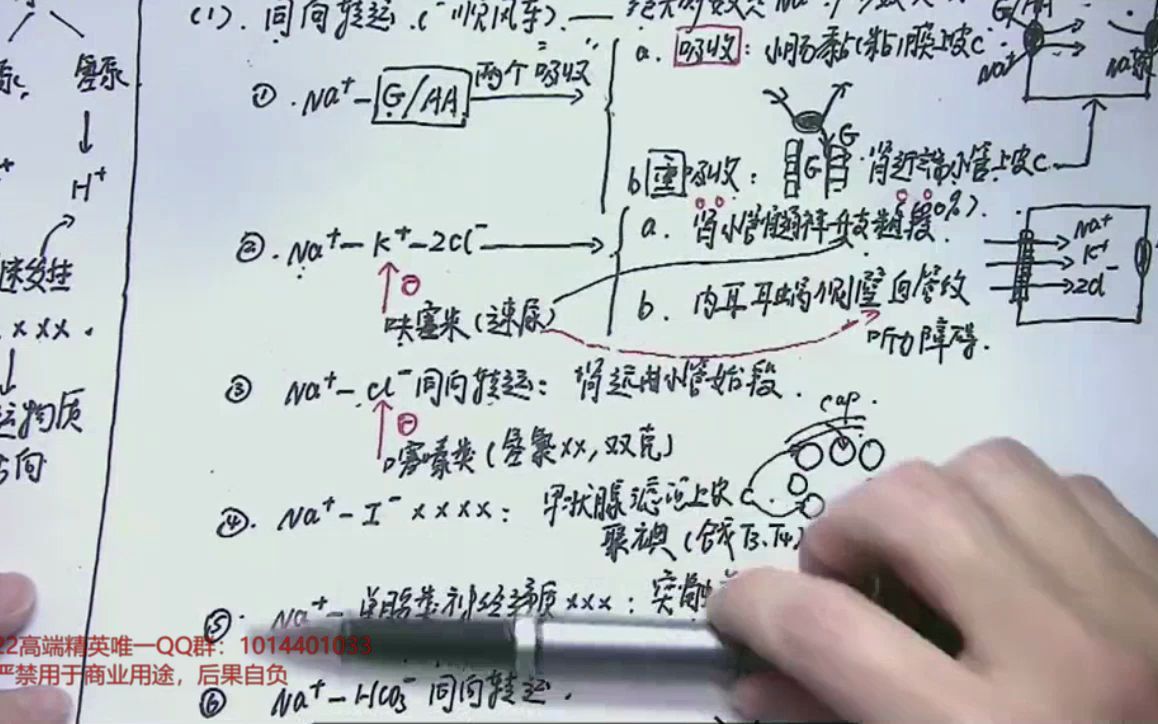 (1). 同向转运.("顺风车") —
氢泵
a. 吸收: 小肠黏(粘)膜上皮C
G/AA
Na⁺
① Na⁺-G/AA 两个"吸收"
H⁺
G
G
b 重吸收: 肾近端小管上皮C
② Na⁺-K⁺-2Cl⁻
a. 肾小管髓袢升支粗段
Na⁺
K⁺
2Cl⁻
⊖
呋塞米(速尿)
b. 内耳耳蜗侧壁血管纹
听力障碍.
xxx.
③ Na⁺-Cl⁻同向转运: 肾远曲小管始段.
cap.
⊖
噻嗪类(氢氯xx,双克)
④. Na⁺-I⁻ xxxx: 甲状腺滤泡上皮C.
聚碘(合成T3、T4)
⑤. Na⁺-单胺类神经递质xxx: 突触
22高端精英唯一QQ群:1014401033
严禁用于商业用途,后果自负
⑥ Na⁺-HCO₃⁻同向转运.